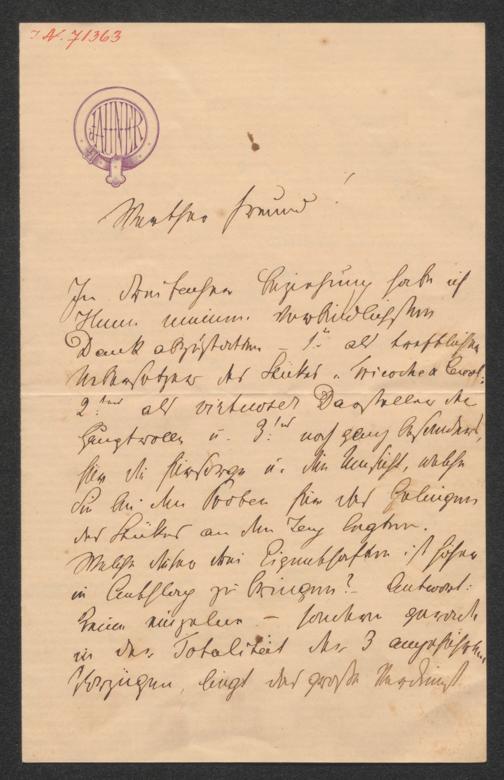 I.N. 71363
JAUNER
Werther Freund!
In dreifacher Beziehung habe ich
Ihnen meinen verbindlichsten
Dank abzustatten – 1. als trefflicher
Uebersetzer des Stückes „Tricoche & Cacol.
2tens als virtuoser Darsteller der
Hauptrolle u. 3tens noch ganz besonders,
für die Fürsorge u. die Umsicht, welche
Sie bei den Proben für das Gelingen
des Stückes an den Tag legten.
Welche dieser drei Eigenschaften ist höher
in Anschlag zu bringen? – Antwort:
Keine einzelne – sondern gerade
in der Totalität der 3 angeführten
Vorzügen, liegt das große Verdienst